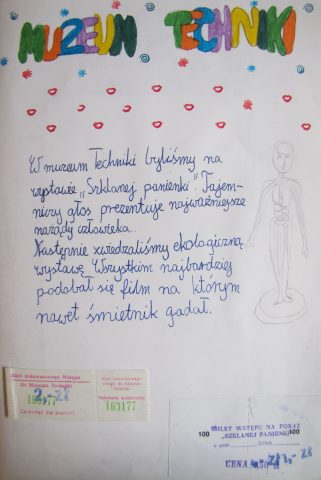 MUZEUM TECHNIKI
W muzeum Techniki byliśmy na
wystawie „Szklanej panienki". Tajem-
niczy głos prezentuje najważniejsze
narządy człowieka.
Następnie zwiedzaliśmy ekologiczną
wystawę. Wszystkim najbardziej
podobał się film na którym
nawet śmietnik gadał.
Bilet Jednorazowego Wstępu
Do Muzeum Techniki
2,- zł
163177
Zachować dla kontroli
163177
100
BILET WSTĘPU NA POKAZ
„SZKLANEJ PANIENKI"
100
CENA